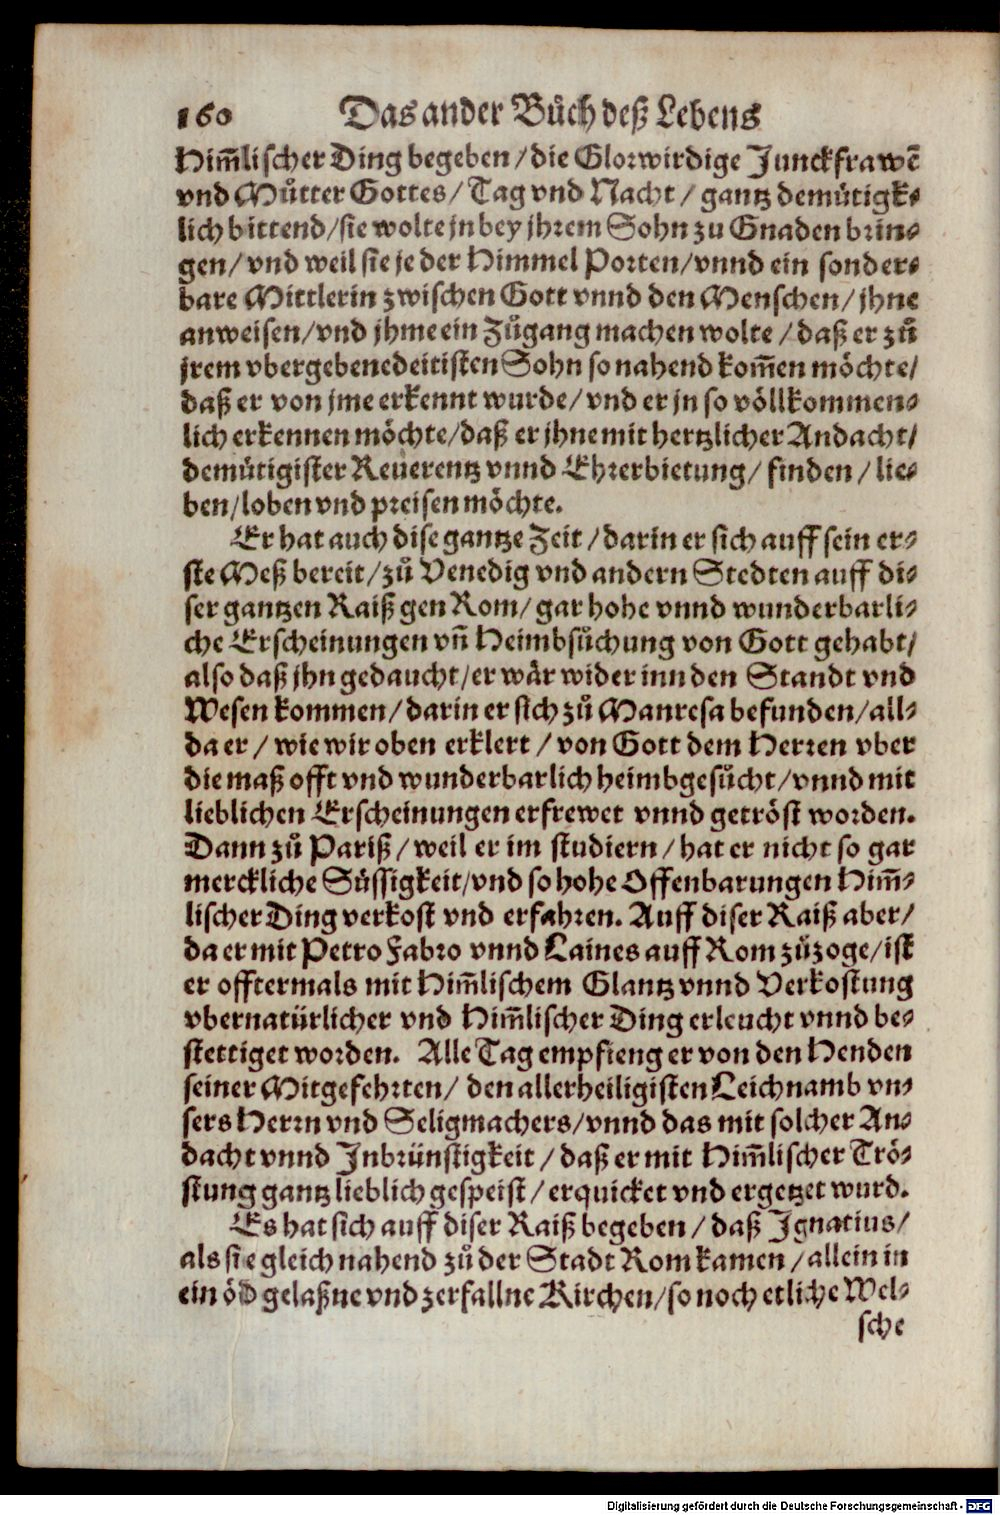 160 Das ander Bůch deß Lebens
Him̃lischer Ding begeben / die Glorwirdige Junckfrawẽ
vnd Můtter Gottes / Tag vnd Nacht / gantz demütigk-
lich bittend / sie wolte jn bey jhrem Sohn zu Gnaden brin-
gen / vnd weil sie je der Himmel Porten / vnnd ein sonder-
bare Mittlerin zwischen Gott vnnd den Menschen / jhne
anweisen / vnd jhme ein Zůgang machen wolte / daß er zů
jrem vbergebenedeitisten Sohn so nahend kom̃en möchte /
daß er von jme erkennt wurde / vnd er jn so völlkommen-
lich erkennen möchte / daß er jhne mit hertzlicher Andacht /
demütigister Reuerentz vnnd Ehrerbietung / finden / lie-
ben / loben vnd preisen möchte.
Er hat auch dise gantze Zeit / darin er sich auff sein er-
ste Meß bereit / zů Venedig vnd andern Stedten auff di-
ser gantzen Raiß gen Rom / gar hohe vnnd wunderbarli-
che Erscheinungen vñ Heimbsůchung von Gott gehabt /
also daß jhn gedaucht / er wär wider inn den Standt vnd
Wesen kommen / darin er sich zů Manresa befunden / all-
da er / wie wir oben erklert / von Gott dem Herren vber
die maß offt vnd wunderbarlich heimbgesůcht / vnnd mit
lieblichen Erscheinungen erfrewet vnnd getröst worden.
Dann zů Pariß / weil er im studiern / hat er nicht so gar
merckliche Süssigkeit / vnd so hohe Offenbarungen Him̃-
lischer Ding verkost vnd erfahren. Auff diser Raiß aber /
da er mit Petro Fabro vnnd Laines auff Rom zůzoge / ist
er offtermals mit Him̃lischem Glantz vnnd Verkostung
vbernatürlicher vnd Him̃lischer Ding erleucht vnnd be-
stettiget worden. Alle Tag empfieng er von den Henden
seiner Mitgefehrten / den allerheiligisten Leichnamb vn-
sers Herrn vnd Seligmachers / vnnd das mit solcher An-
dacht vnnd Inbrünstigkeit / daß er mit Him̃lischer Trö-
stung gantz lieblich gespeist / erquicket vnd ergetzet wurd.
Es hat sich auff diser Raiß begeben / daß Ignatius /
als sie gleich nahend zů der Stadt Rom kamen / allein in
ein öd gelaßne vnd zerfallne Kirchen / so noch etliche Wel-
sche
Digitalisierung gefördert durch die Deutsche Forschungsgemeinschaft - DFG